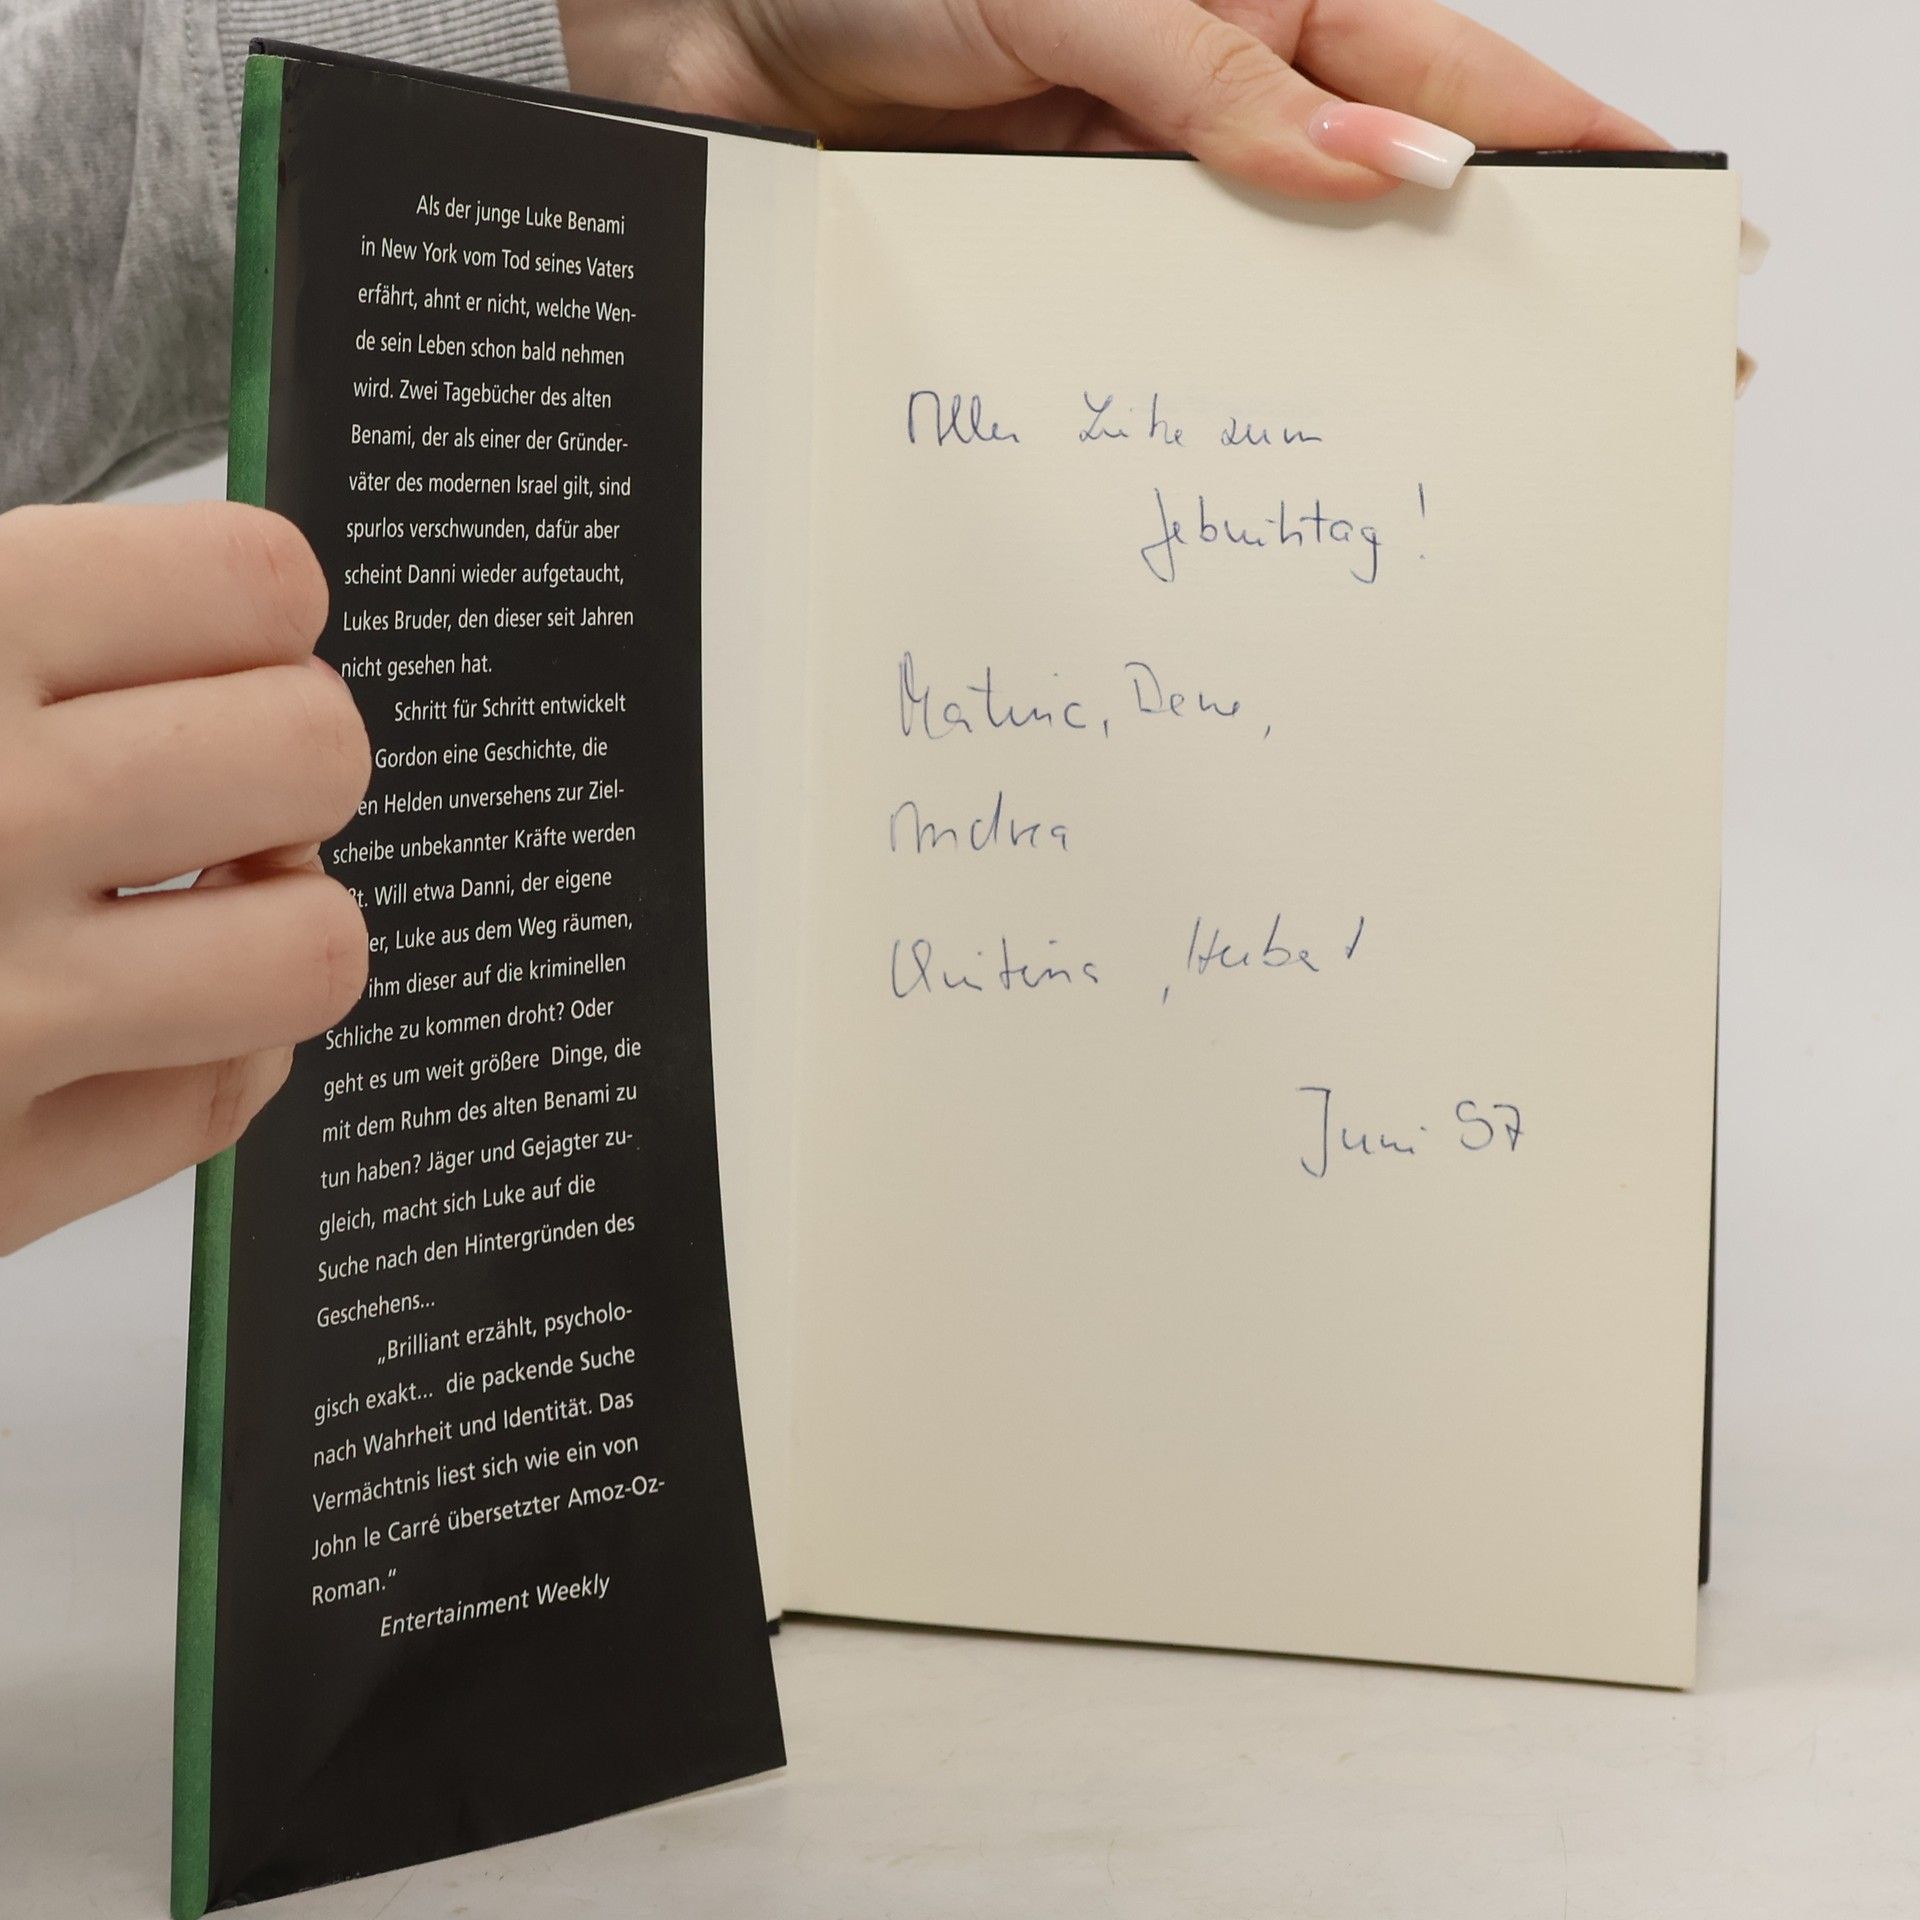 Als der junge Luke Benami
in New York vom Tod seines Vaters
erfährt, ahnt er nicht, welche Wen-
de sein Leben schon bald nehmen
wird. Zwei Tagebücher des alten
Benami, der als einer der Gründer-
väter des modernen Israel gilt, sind
spurlos verschwunden, dafür aber
scheint Danni wieder aufgetaucht,
Lukes Bruder, den dieser seit Jahren
nicht gesehen hat.
Schritt für Schritt entwickelt
Gordon eine Geschichte, die
en Helden unversehens zur Ziel-
scheibe unbekannter Kräfte werden
ßt. Will etwa Danni, der eigene
er, Luke aus dem Weg räumen,
ihm dieser auf die kriminellen
Schliche zu kommen droht? Oder
geht es um weit größere Dinge, die
mit dem Ruhm des alten Benami zu
tun haben? Jäger und Gejagter zu-
gleich, macht sich Luke auf die
Suche nach den Hintergründen des
Geschehens...
„Brilliant erzählt, psycholo-
gisch exakt... die packende Suche
nach Wahrheit und Identität. Das
Vermächtnis liest sich wie ein von
John le Carré übersetzter Amoz-Oz-
Roman.“
Entertainment Weekly
Alles Liebe zum
Geburtstag!
Martina,
Andrea
Christina, Herbert
Juni 97